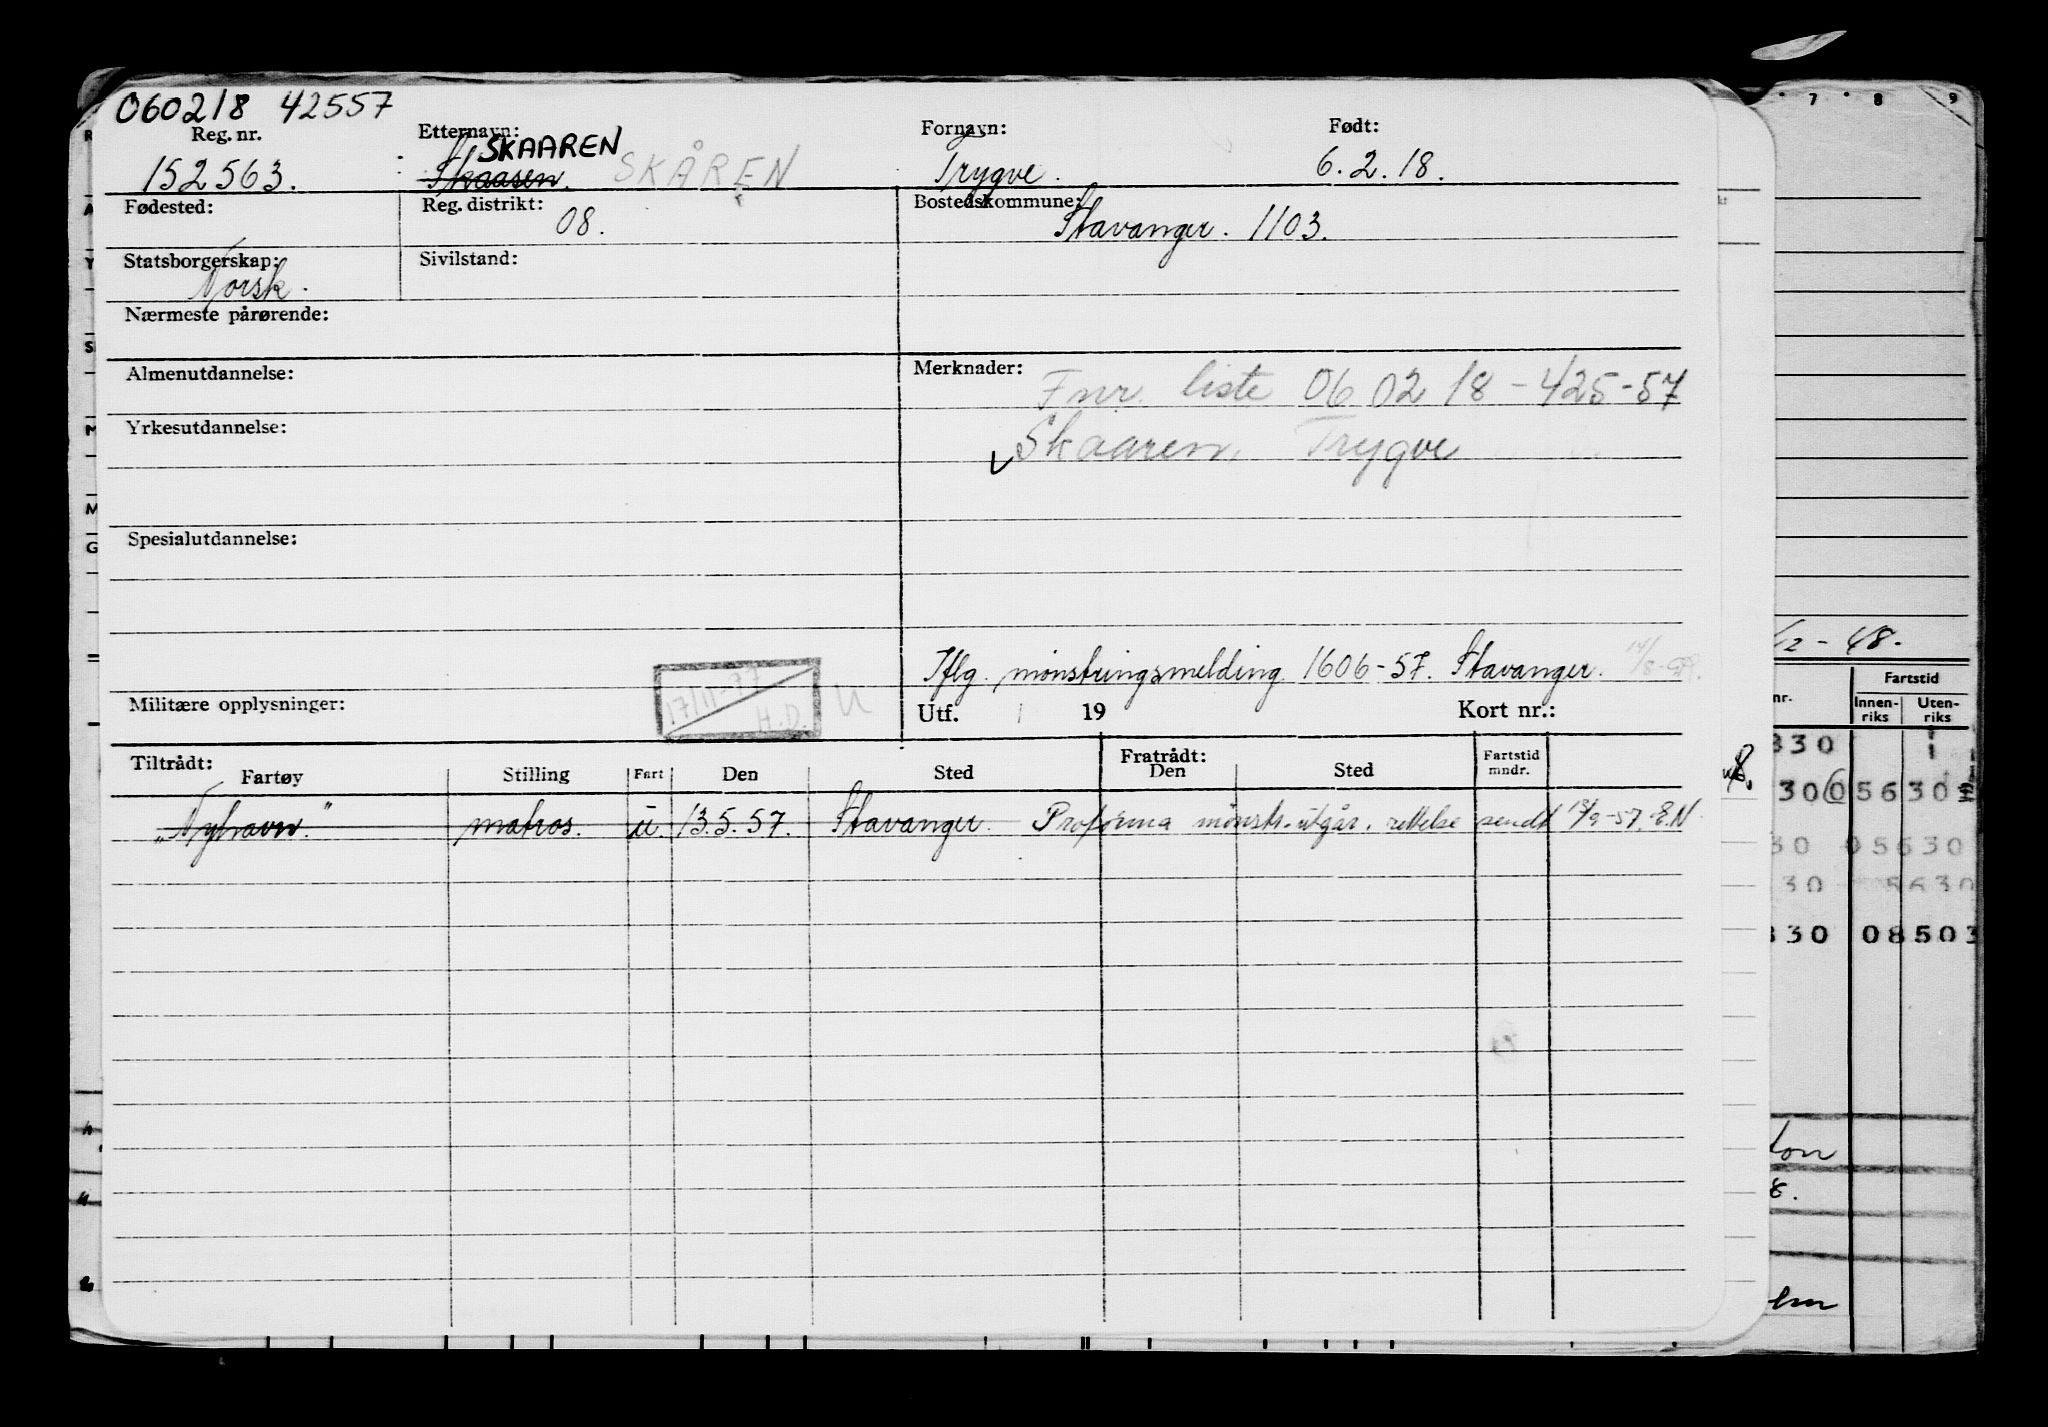 060218 42557
Reg. nr. Etternavn: Fornavn: Født:
SKAAREN
152563. Skaasen. SKÅREN Trygve. 6.2.18.
Fødested: Reg. distrikt: 08. Bostedskommune: Stavanger. 1103.
Statsborgerskap: Sivilstand:
Norsk.
Nærmeste pårørende:
Almenutdannelse: Merknader: Fnr. liste 06 02 18-425-57
Yrkesutdannelse: Skaaren, Trygve
Spesialutdannelse:
Iflg. mønstringsmelding 1606-57. Stavanger. 14/8-
Militære opplysninger: 17/11-77 H.D. U Utf. 19 Kort nr.:
Tiltrådt: Fratrådt: Fartstid
Fartøy Stilling Fart Den Sted Den Sted mndr.
"Nyhavn." matros. u. 13.5.57. Stavanger. Proforma mønstr. utgår. rettelse sendt 13/9-57. E.N.
7 8 9
/2-48.
nr. Fartstid
Innen-riks Uten-riks
330
30 056 30
30 05630
30 5630
330 08503
ton
8.